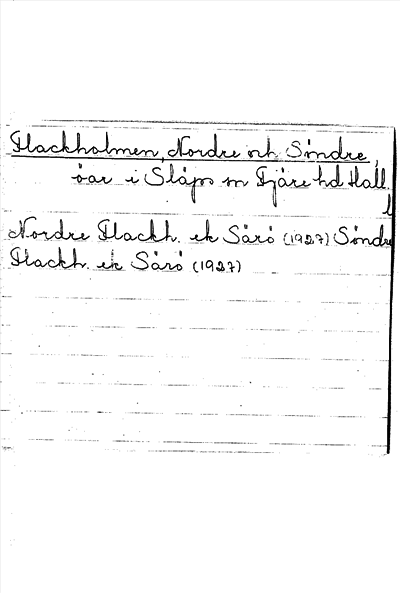 Flackholmen, Nordre och Söndre,
öar i Släps sn Fjäre hd Hall.
l
Nordre Flackh. ek Särö (1927) Söndre
Flackh. ek Särö (1927)